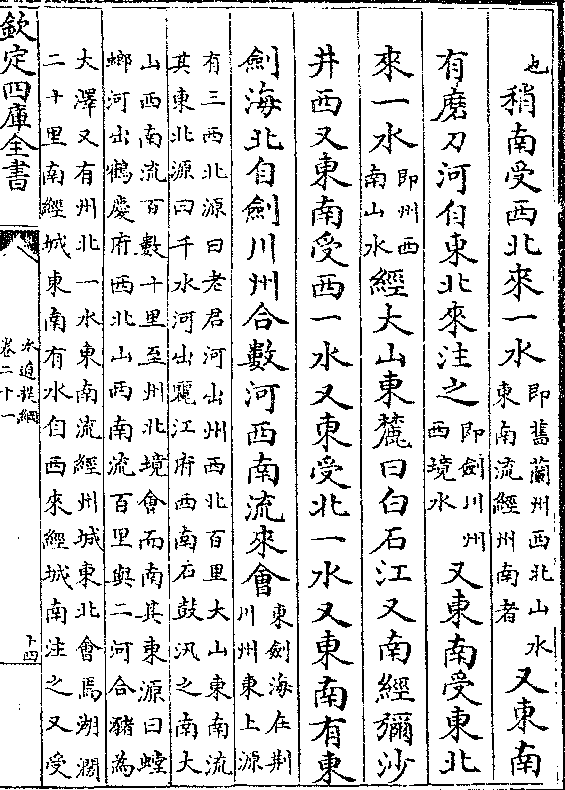 也稍南受西北來一水即舊蘭州西北山水東南流經州南者又東南
有磨刀河自東北來注之即劍川州西境水又東南受東北
來一水即州西南山水經大山東麓曰白石江又南經彌沙
井西又東南受西一水又東受北一水又東南有東
劍海北自劍川州合數河西南流來會東劍海在荆川州東上源
有三西北源曰老君河出州西北百里大山東南流
其東北源曰千水河出麗江府西南石鼓汛之南大
山西南流百數十里至州北境會而南其東源曰螳
螂河出鶴慶府西北山西南流百里與二河合豬為
大澤又有州北一水東南流經州城東北會焉湖濶
二十里南經城東南有水自西來經城南注之又受
欽定四庫全書
水道提綱
卷二十一
十四